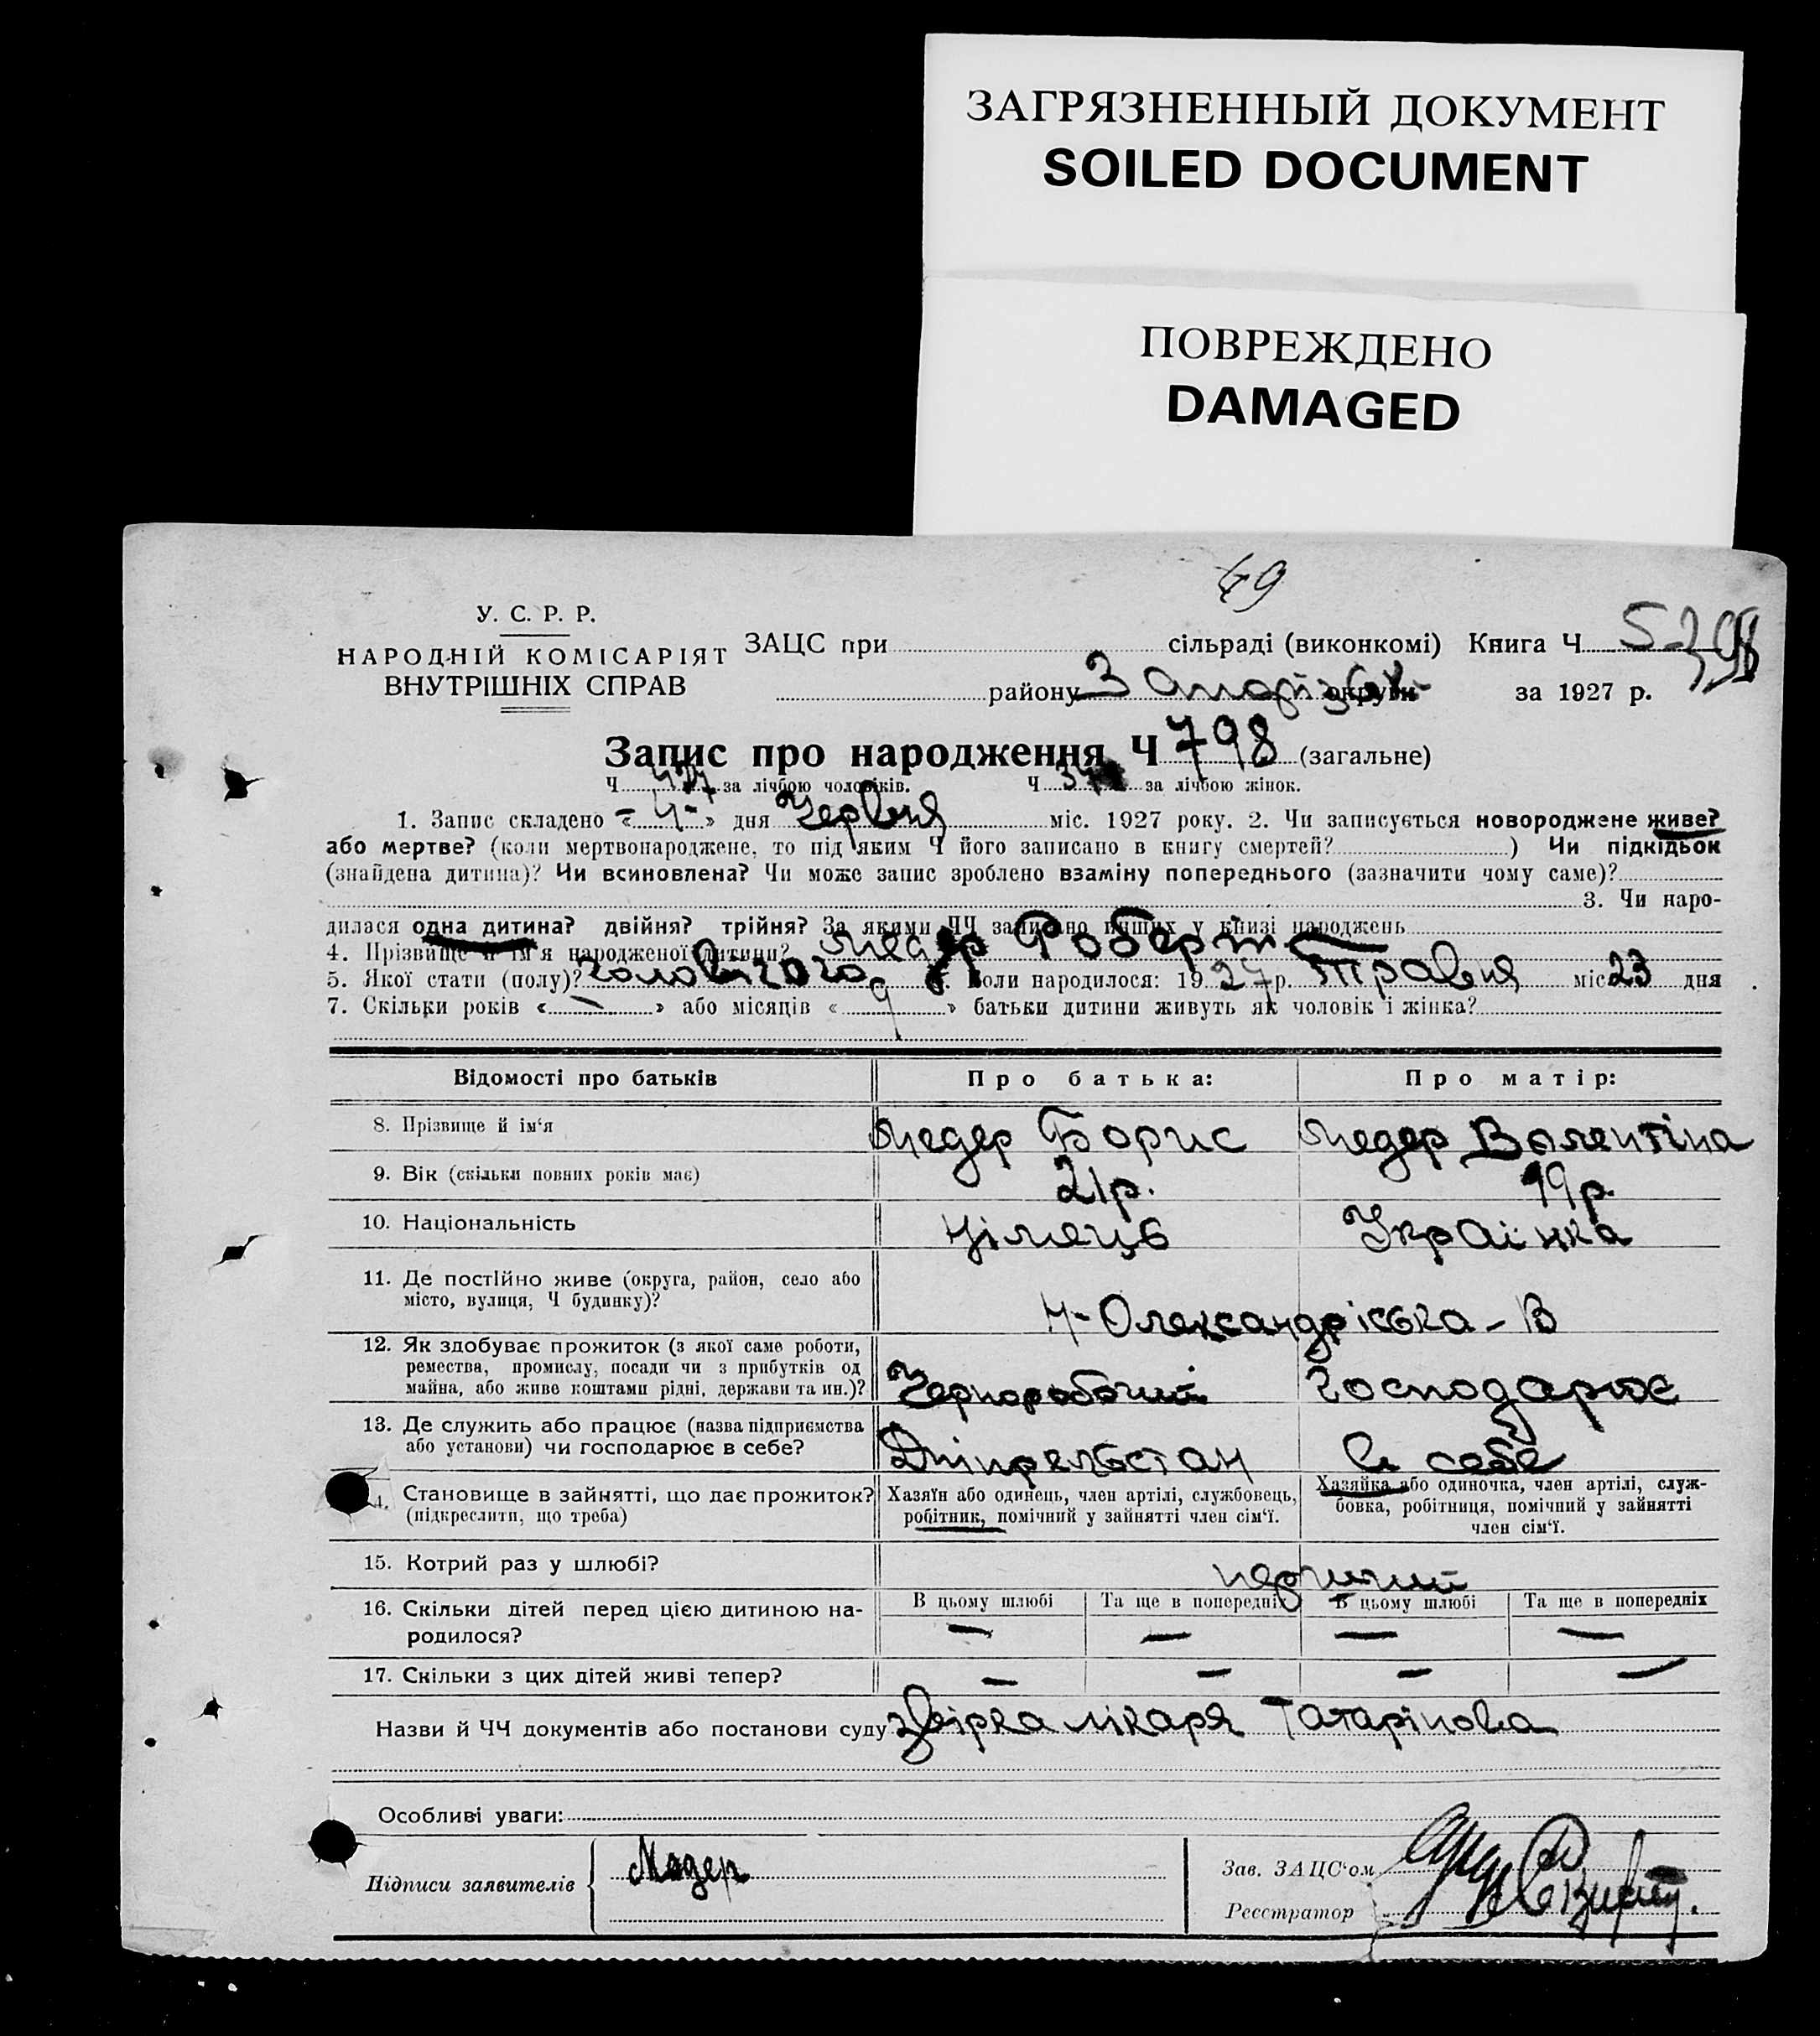 ЗАГРЯЗНЕННЫЙ ДОКУМЕНТ
SOILED DOCUMENT
ПОВРЕЖДЕНО
DAMAGED
49
У. С. Р. Р.
НАРОДНІЙ КОМІСАРІЯТ
ВНУТРІШНІХ СПРАВ
ЗАЦС при сільраді (виконкомі) Книга Ч
району З округи за 1927 р.
Запис про народження Ч 798 (загальне)
Ч за лічбою чоловіків. Ч за лічбою жінок.
1. Запис складено «-4-» дня Червня міс. 1927 року. 2. Чи записується новороджене живе?
або мертве? (коли мертвонароджене, то під яким Ч його записано в книгу смертей? ) Чи підкідьок
(знайдена дитина)? Чи всиновлена? Чи може запис зроблено взаміну попереднього (зазначити чому саме)?
3. Чи наро-
дилася одна дитина? двійня? трійня? За якими ЧЧ записано инших у книзі народжень
4. Прізвище й ім'я народженої дитини? Медер Роберт
5. Якої стати (полу)? чоловічого 6. Коли народилося: 1927 р. Травня міс 23 дня
7. Скільки років «—» або місяців «9» батьки дитини живуть як чоловік і жінка?
Відомості про батьків Про батька: Про матір:
8. Прізвище й ім'я Медер Борис Медер Валентіна
9. Вік (скільки повних років має) 21р. 19р.
10. Національність Німець Українка
11. Де постійно живе (округа, район, село або
місто, вулиця, Ч будинку)?
Н-Олександрієвка-В
12. Як здобуває прожиток (з якої саме роботи,
ремества, промислу, посади чи з прибутків од
майна, або живе коштами рідні, держави та ин.)? Чернорабочий Господарює
13. Де служить або працює (назва підприємства
або установи) чи господарює в себе? Дніпрельстан в себе
14. Становище в зайнятті, що дає прожиток?
(підкреслити, що треба)
Хазяїн або одинець, член артілі, службовець,
робітник, помічний у зайнятті член сім'ї.
Хазяйка або одиночка, член артілі, служ-
бовка, робітниця, помічний у зайнятті
член сім'ї.
15. Котрий раз у шлюбі? перший
16. Скільки дітей перед цією дитиною на-
родилося?
В цьому шлюбі Та ще в попередніх В цьому шлюбі Та ще в попередніх
— — — —
17. Скільки з цих дітей живі тепер? — — — —
Назви й ЧЧ документів або постанови суду звірка лікаря Татарінова
Особливі уваги:
Підписи заявителів Медер
Зав. ЗАЦС'ом
Реєстратор